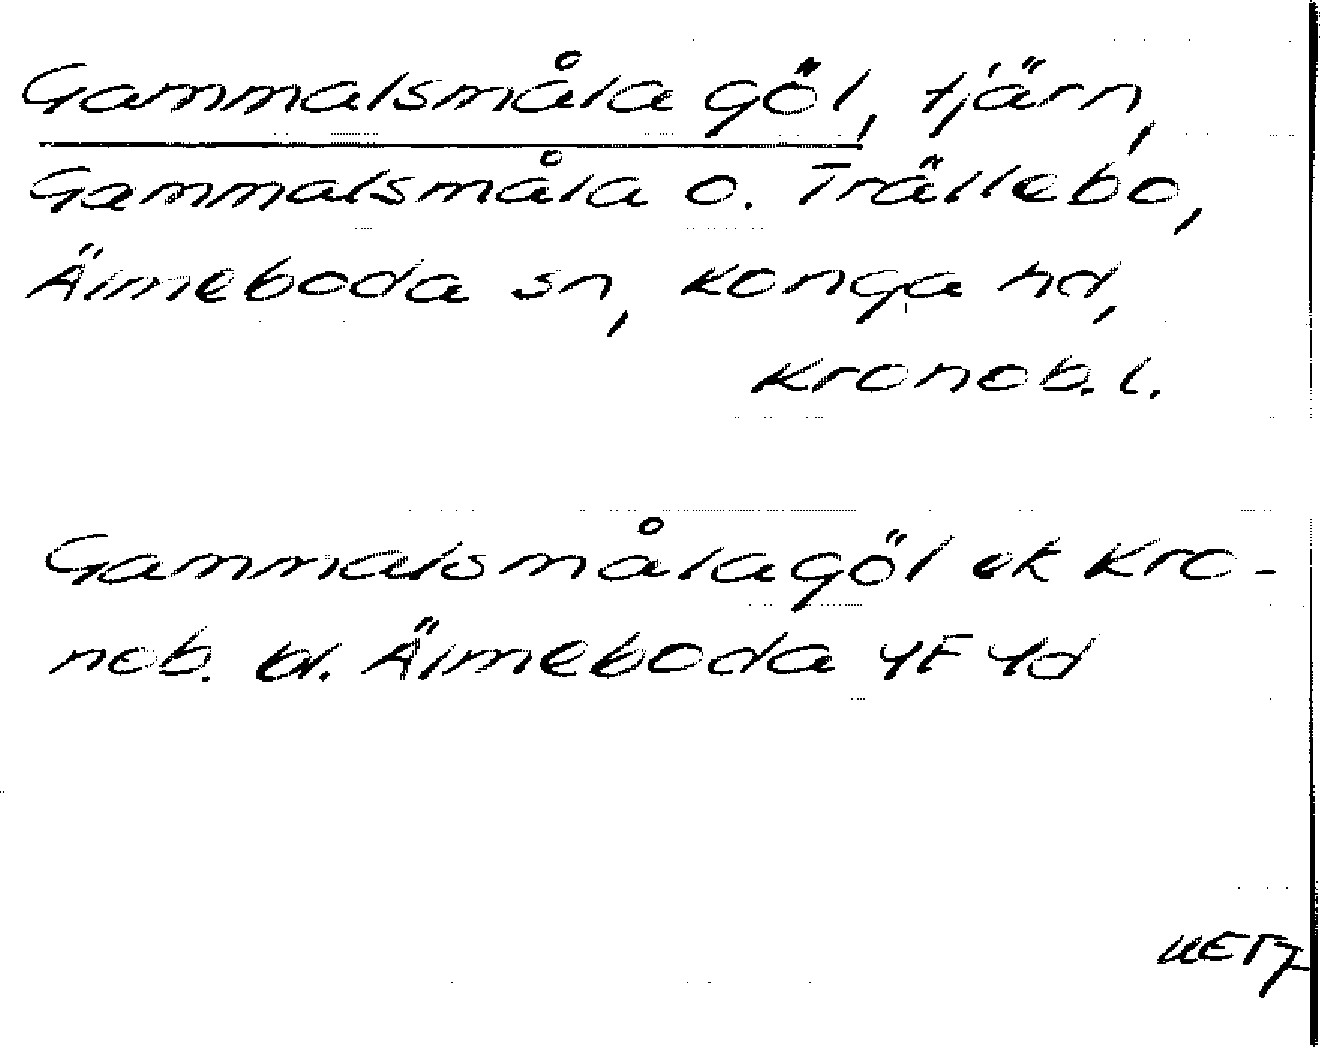 Gammalsmåla göl, tjärn,
Gammalsmåla o. Trällebo,
Älmeboda sn, Konga hd,
Kronob. l.
Gammalsmålagöl ek Kro-
nob. bl. Älmeboda 4F 4d